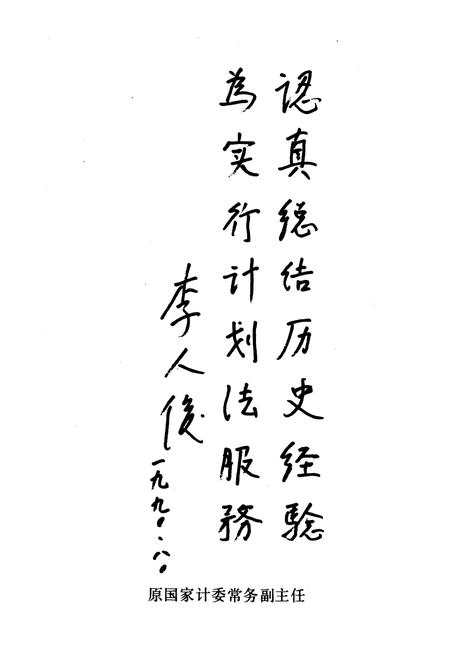 認真總结历史经騐
為实行计划法服務
李人俊
一九九〇.八.
原国家计委常务副主任